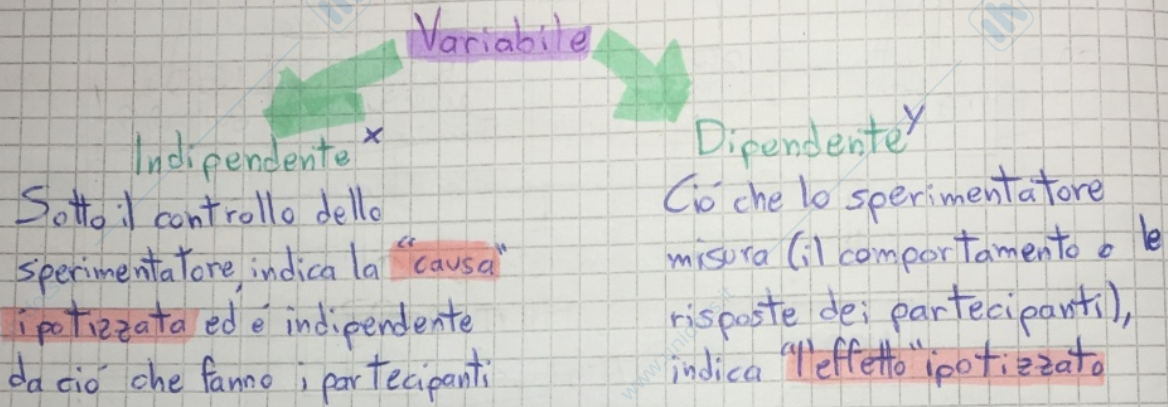 Variabile
Indipendente x
Sotto il controllo dello
sperimentatore, indica la "causa"
ipotizzata ed é indipendente
da ció che fanno i partecipanti
Dipendente y
Ció che lo sperimentatore
misura (il comportamento o le
risposte dei partecipanti),
indica "l'effetto" ipotizzato